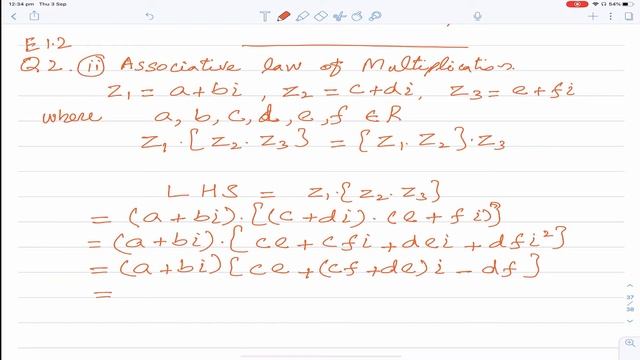 12:34 pm Thu 3 Sep
54%
E 1.2
Q 2. (ii) Associative law of Multiplication.
z₁ = a+bi , z₂ = c+di, z₃ = e+fi
where a, b, c, d, e, f ∈ R
z₁ · {z₂ · z₃} = {z₁ · z₂} · z₃
LHS = z₁·{z₂·z₃}
= (a+bi)·{(c+di)·(e+fi)}
= (a+bi)·{ce+cfi+dei+dfi²}
= (a+bi){ce+(cf+de)i-df}
=
37
38